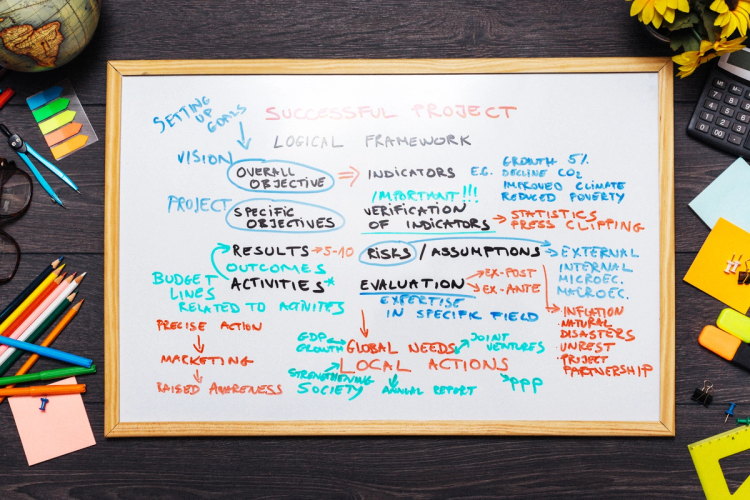 SETTING UP GOALS
SUCCESSFUL PROJECT
LOGICAL FRAMEWORK
VISION
OVERALL OBJECTIVE
INDICATORS E.G.
GROWTH 5%
DECLINE CO2
IMPROVED CLIMATE
REDUCED POVERTY
PROJECT
SPECIFIC OBJECTIVES
IMPORTANT!!!
VERIFICATION OF INDICATORS
STATISTICS
PRESS CLIPPING
RESULTS → 5-10
OUTCOMES
ACTIVITIES*
RISKS / ASSUMPTIONS
EXTERNAL
INTERNAL
MICROEC.
MACROEC.
BUDGET LINES
RELATED TO ACTIVITES
EVALUATION
EX-POST
EX-ANTE
EXPERTISE
IN SPECIFIC FIELD
INFLATION
· NATURAL DISASTERS
UNREST
· PROJECT PARTNERSHIP
PRECISE ACTION
MARKETING
RAISED AWARENESS
GDP GROWTH
GLOBAL NEEDS
JOINT VENTURES
LOCAL ACTIONS
STRENGTHENING
SOCIETY
ANNUAL REPORT
PPP